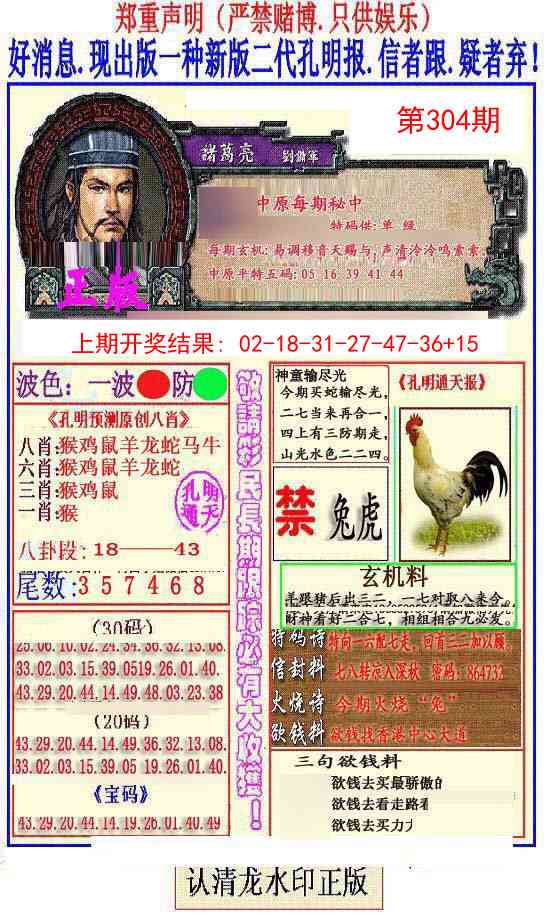 郑重声明（严禁赌博.只供娱乐）
好消息.现出版一种新版二代孔明报.信者跟.疑者弃!
第304期
諸葛亮 劉備軍
中原每期秘中
特码供:单绿
每期玄机:易调移音天赐与,声清泠泠鸣索索.
中原平特五码:05 16 39 41 44
正版
上期开奖结果: 02-18-31-27-47-36+15
波色：一波 防
《孔明预测原创八肖》
八肖:猴鸡鼠羊龙蛇马牛
六肖:猴鸡鼠羊龙蛇
三肖:猴鸡鼠
一肖:猴
孔明
通天
八卦段:18——43
尾数:357468
(30码)
25.06.10.02.24.34.36.32.13.08.
33.02.03.15.39.0519.26.01.40.
43.29.20.44.14.49.48.03.23.38
(20码)
43.29.20.44.14.49.36.32.13.08.
33.02.03.15.39.05 19.26.01.40.
《宝码》
43.29.20.44.14.19.26.01.40.49
敬請彩民長期跟踪必有大收獲！
神童输尽光
今期买蛇输尽光，
二七当来再合一，
四上有三防期走，
山光水色二二四。
禁
兔虎
《孔明通天报》
玄机料
羊跟猪后出三二，一七对取八来合，
财神看好二合七，相组相合九必发。
特码诗 特向一六配七走，回首三二加以顾。
信封料 七八转应入深秋 密码：864732
火烧诗 今期火烧“兔”
欲钱料 欲钱找香港中心大道
三句欲钱料
欲钱去买最骄傲的
欲钱去看走路看
欲钱去买力
认清龙水印正版